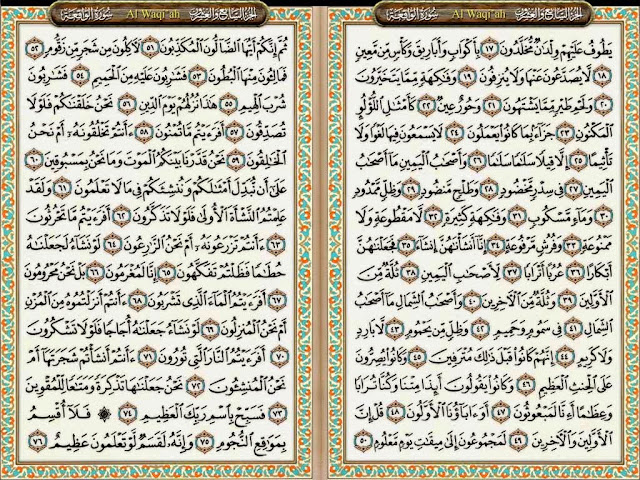 الجزء السابع والعشرون Al Waqi'ah سورة الواقعة
يَطُوفُ عَلَيْهِمْ وِلْدَٰنٌ مُّخَلَّدُونَ ١٧ بِأَكْوَابٍ وَأَبَارِيقَ وَكَأْسٍ مِّن مَّعِينٍ
١٨ لَّا يُصَدَّعُونَ عَنْهَا وَلَا يُنزِفُونَ ١٩ وَفَٰكِهَةٍ مِّمَّا يَتَخَيَّرُونَ
٢٠ وَلَحْمِ طَيْرٍ مِّمَّا يَشْتَهُونَ ٢١ وَحُورٌ عِينٌ ٢٢ كَأَمْثَٰلِ ٱللُّؤْلُؤِ
ٱلْمَكْنُونِ ٢٣ جَزَآءًۢ بِمَا كَانُوا۟ يَعْمَلُونَ ٢٤ لَا يَسْمَعُونَ فِيهَا لَغْوًا وَلَا
تَأْثِيمًا ٢٥ إِلَّا قِيلًا سَلَٰمًا سَلَٰمًا ٢٦ وَأَصْحَٰبُ ٱلْيَمِينِ مَآ أَصْحَٰبُ
ٱلْيَمِينِ ٢٧ فِى سِدْرٍ مَّخْضُودٍ ٢٨ وَطَلْحٍ مَّنضُودٍ ٢٩ وَظِلٍّ مَّمْدُودٍ
٣٠ وَمَآءٍ مَّسْكُوبٍ ٣١ وَفَٰكِهَةٍ كَثِيرَةٍ ٣٢ لَّا مَقْطُوعَةٍ وَلَا
مَمْنُوعَةٍ ٣٣ وَفُرُشٍ مَّرْفُوعَةٍ ٣٤ إِنَّآ أَنشَأْنَٰهُنَّ إِنشَآءً ٣٥ فَجَعَلْنَٰهُنَّ
أَبْكَارًا ٣٦ عُرُبًا أَتْرَابًا ٣٧ لِّأَصْحَٰبِ ٱلْيَمِينِ ٣٨ ثُلَّةٌ مِّنَ
ٱلْأَوَّلِينَ ٣٩ وَثُلَّةٌ مِّنَ ٱلْءَاخِرِينَ ٤٠ وَأَصْحَٰبُ ٱلشِّمَالِ مَآ أَصْحَٰبُ
ٱلشِّمَالِ ٤١ فِى سَمُومٍ وَحَمِيمٍ ٤٢ وَظِلٍّ مِّن يَحْمُومٍ ٤٣ لَّا بَارِدٍ
وَلَا كَرِيمٍ ٤٤ إِنَّهُمْ كَانُوا۟ قَبْلَ ذَٰلِكَ مُتْرَفِينَ ٤٥ وَكَانُوا۟ يُصِرُّونَ
عَلَى ٱلْحِنثِ ٱلْعَظِيمِ ٤٦ وَكَانُوا۟ يَقُولُونَ أَئِذَا مِتْنَا وَكُنَّا تُرَابًا
وَعِظَٰمًا أَءِنَّا لَمَبْعُوثُونَ ٤٧ أَوَءَابَآؤُنَا ٱلْأَوَّلُونَ ٤٨ قُلْ إِنَّ
ٱلْأَوَّلِينَ وَٱلْءَاخِرِينَ ٤٩ لَمَجْمُوعُونَ إِلَىٰ مِيقَٰتِ يَوْمٍ مَّعْلُومٍ ٥٠
الجزء السابع والعشرون Al Waqi'ah سورة الواقعة
ثُمَّ إِنَّكُمْ أَيُّهَا ٱلضَّآلُّونَ ٱلْمُكَذِّبُونَ ٥١ لَءَاكِلُونَ مِن شَجَرٍ مِّن زَقُّومٍ ٥٢
فَمَالِـُٔونَ مِنْهَا ٱلْبُطُونَ ٥٣ فَشَٰرِبُونَ عَلَيْهِ مِنَ ٱلْحَمِيمِ ٥٤ فَشَٰرِبُونَ
شُرْبَ ٱلْهِيمِ ٥٥ هَٰذَا نُزُلُهُمْ يَوْمَ ٱلدِّينِ ٥٦ نَحْنُ خَلَقْنَٰكُمْ فَلَوْلَا
تُصَدِّقُونَ ٥٧ أَفَرَءَيْتُم مَّا تُمْنُونَ ٥٨ ءَأَنتُمْ تَخْلُقُونَهُۥٓ أَمْ نَحْنُ
ٱلْخَٰلِقُونَ ٥٩ نَحْنُ قَدَّرْنَا بَيْنَكُمُ ٱلْمَوْتَ وَمَا نَحْنُ بِمَسْبُوقِينَ ٦٠
عَلَىٰٓ أَن نُّبَدِّلَ أَمْثَٰلَكُمْ وَنُنشِئَكُمْ فِى مَا لَا تَعْلَمُونَ ٦١ وَلَقَدْ
عَلِمْتُمُ ٱلنَّشْأَةَ ٱلْأُولَىٰ فَلَوْلَا تَذَكَّرُونَ ٦٢ أَفَرَءَيْتُم مَّا تَحْرُثُونَ
٦٣ ءَأَنتُمْ تَزْرَعُونَهُۥٓ أَمْ نَحْنُ ٱلزَّٰرِعُونَ ٦٤ لَوْ نَشَآءُ لَجَعَلْنَٰهُ
حُطَٰمًا فَظَلْتُمْ تَفَكَّهُونَ ٦٥ إِنَّا لَمُغْرَمُونَ ٦٦ بَلْ نَحْنُ مَحْرُومُونَ
٦٧ أَفَرَءَيْتُمُ ٱلْمَآءَ ٱلَّذِى تَشْرَبُونَ ٦٨ ءَأَنتُمْ أَنزَلْتُمُوهُ مِنَ ٱلْمُزْنِ
أَمْ نَحْنُ ٱلْمُنزِلُونَ ٦٩ لَوْ نَشَآءُ جَعَلْنَٰهُ أُجَاجًا فَلَوْلَا تَشْكُرُونَ
٧٠ أَفَرَءَيْتُمُ ٱلنَّارَ ٱلَّتِى تُورُونَ ٧١ ءَأَنتُمْ أَنشَأْتُمْ شَجَرَتَهَآ أَمْ
نَحْنُ ٱلْمُنشِـُٔونَ ٧٢ نَحْنُ جَعَلْنَٰهَا تَذْكِرَةً وَمَتَٰعًا لِّلْمُقْوِينَ
٧٣ فَسَبِّحْ بِٱسْمِ رَبِّكَ ٱلْعَظِيمِ ٧٤ ۞ فَلَآ أُقْسِمُ
بِمَوَٰقِعِ ٱلنُّجُومِ ٧٥ وَإِنَّهُۥ لَقَسَمٌ لَّوْ تَعْلَمُونَ عَظِيمٌ ٧٦